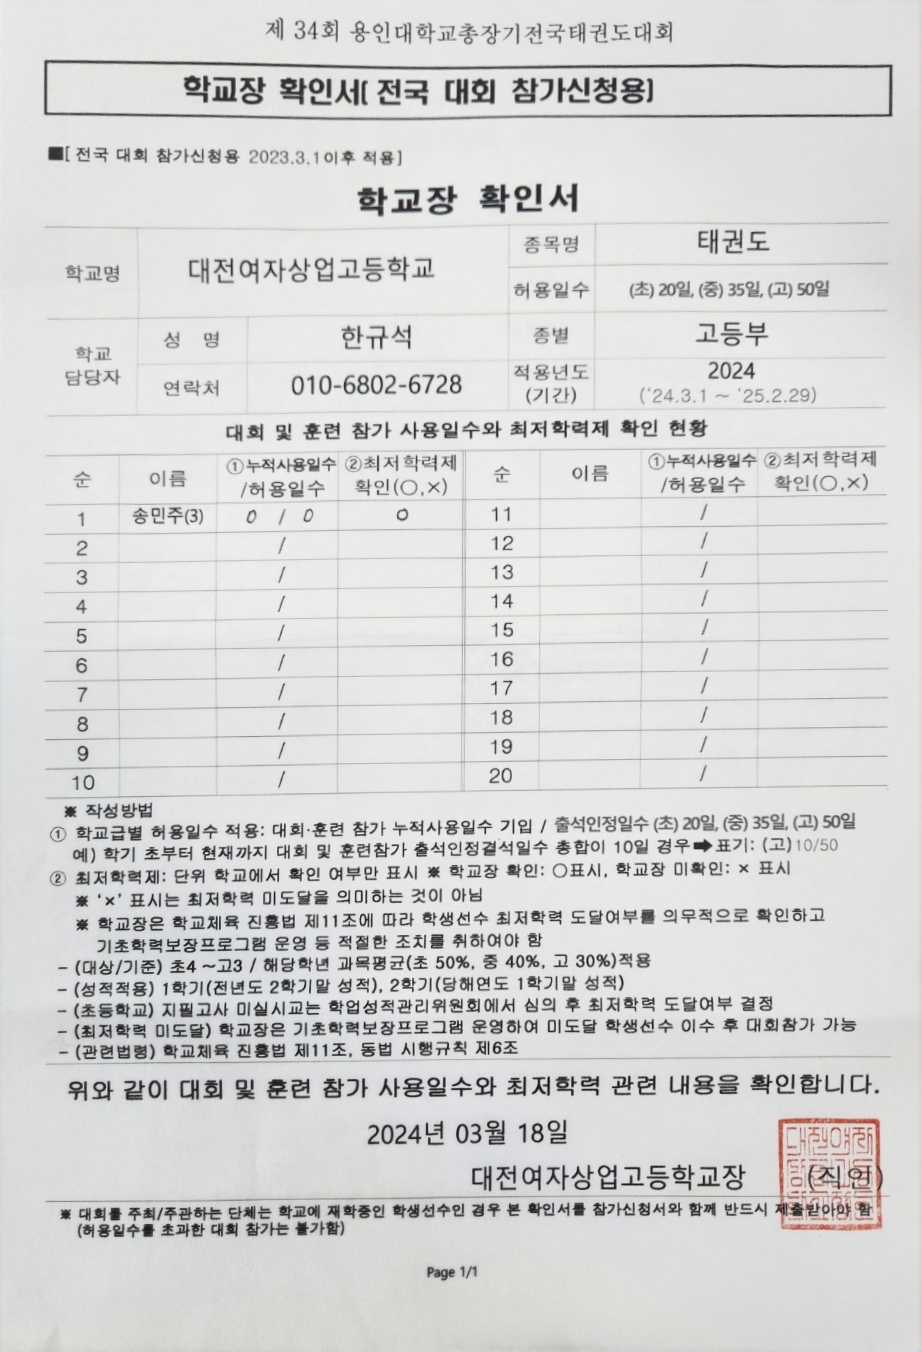 제 34회 용인대학교총장기전국태권도대회
학교장 확인서[ 전국 대회 참가신청용]
■[ 전국 대회 참가신청용 2023.3.1이후 적용]
학교장 확인서
학교명 대전여자상업고등학교 종목명 태권도
허용일수 (초) 20일, (중) 35일, (고) 50일
학교 담당자 성 명 한규석 종별 고등부
연락처 010-6802-6728 적용년도 (기간) 2024 ('24.3.1 ~ '25.2.29)
대회 및 훈련 참가 사용일수와 최저학력제 확인 현황
순 이름 ①누적사용일수 /허용일수 ②최저학력제 확인(○,×) 순 이름 ①누적사용일수 /허용일수 ②최저학력제 확인(○,×)
1 송민주(3) 0 / 0 ○ 11 /
2 / 12 /
3 / 13 /
4 / 14 /
5 / 15 /
6 / 16 /
7 / 17 /
8 / 18 /
9 / 19 /
10 / 20 /
※ 작성방법
① 학교급별 허용일수 적용: 대회·훈련 참가 누적사용일수 기입 / 출석인정일수 (초) 20일, (중) 35일, (고) 50일
예) 학기 초부터 현재까지 대회 및 훈련참가 출석인정결석일수 총합이 10일 경우➡표기: (고)10/50
② 최저학력제: 단위 학교에서 확인 여부만 표시 ※ 학교장 확인: ○표시, 학교장 미확인: × 표시
※ '×' 표시는 최저학력 미도달을 의미하는 것이 아님
※ 학교장은 학교체육 진흥법 제11조에 따라 학생선수 최저학력 도달여부를 의무적으로 확인하고
기초학력보장프로그램 운영 등 적절한 조치를 취하여야 함
– (대상/기준) 초4 ~고3 / 해당학년 과목평균(초 50%, 중 40%, 고 30%)적용
– (성적적용) 1학기(전년도 2학기말 성적), 2학기(당해연도 1학기말 성적)
– (초등학교) 지필고사 미실시교는 학업성적관리위원회에서 심의 후 최저학력 도달여부 결정
– (최저학력 미도달) 학교장은 기초학력보장프로그램 운영하여 미도달 학생선수 이수 후 대회참가 가능
– (관련법령) 학교체육 진흥법 제11조, 동법 시행규칙 제6조
위와 같이 대회 및 훈련 참가 사용일수와 최저학력 관련 내용을 확인합니다.
2024년 03월 18일
대전여자상업고등학교장 (직인)
※ 대회를 주최/주관하는 단체는 학교에 재학중인 학생선수인 경우 본 확인서를 참가신청서와 함께 반드시 제출받아야 함
(허용일수를 초과한 대회 참가는 불가함)
Page 1/1